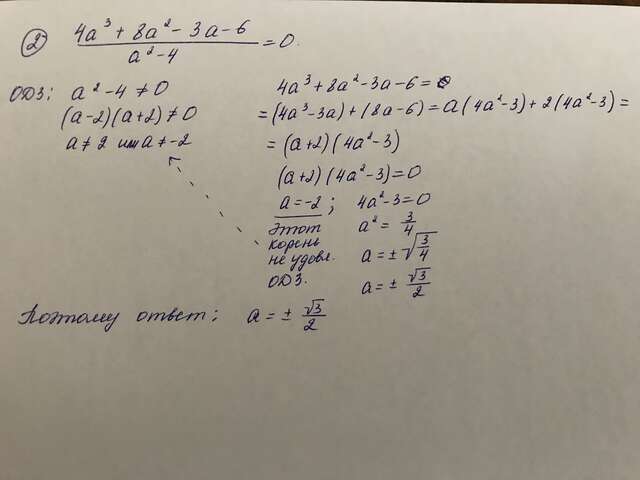 ② (4a³ + 8a² - 3a - 6)/(a² - 4) = 0.
ОДЗ: a² - 4 ≠ 0
(a-2)(a+2) ≠ 0
a ≠ 2 или a ≠ -2
4a³ + 8a² - 3a - 6 =
= (4a³ - 3a) + (8a - 6) = a(4a² - 3) + 2(4a² - 3) =
= (a+2)(4a² - 3)
(a+2)(4a² - 3) = 0
a = -2; 4a² - 3 = 0
Этот корень не удовл. ОДЗ.
a² = 3/4
a = ± √(3/4)
a = ± √3/2
Поэтому ответ: a = ± √3/2